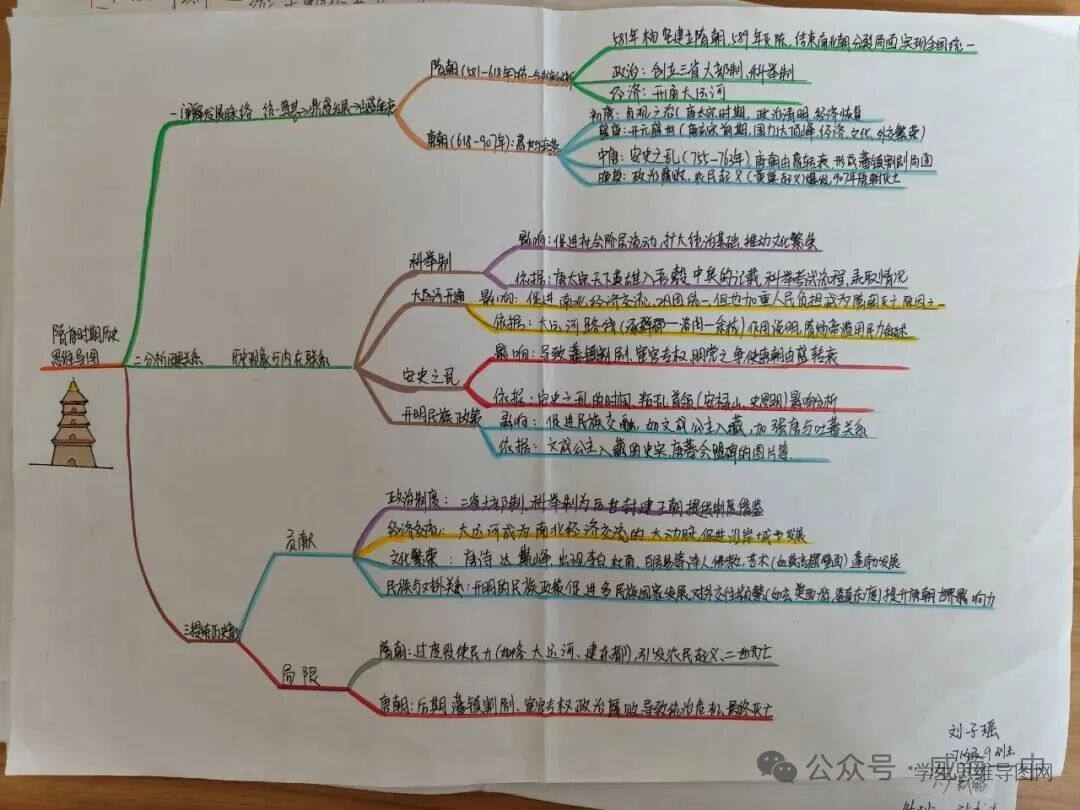 隋唐时期历史
思维导图
一 理解发展脉络 统一奠基→鼎盛发展→由盛转衰
隋朝(581-618年)统一与制度创新
581年杨坚建立隋朝,589年灭陈,结束南北朝分裂局面,实现全国统一
政治:创立三省六部制、科举制
经济:开凿大运河
唐朝(618-907年):盛世与转衰
初唐:贞观之治(唐太宗时期,政治清明,经济恢复
盛唐:开元盛世(唐玄宗前期,国力达顶峰,经济,文化,外交繁荣)
中唐:安史之乱(755-763年),唐朝由盛转衰,形成藩镇割剧局面
晚唐:政治腐败,农民起义(黄巢起义)爆发,907年唐朝灭亡
二分析因果关系 历史现象与内在联系
科举制
影响:促进社会阶层流动,扩大统治基础,推动文化繁荣
依据:唐太宗天下英雄入吾彀中矣的记载,科举考试流程,录取情况
大运河开通
影响:促进南北经济交流,巩固统一,但也加重人民负担,成为隋朝灭亡原因之一
依据:大运河路线(涿郡—洛阳—余杭)作用说明,隋炀帝滥用民力叙述
安史之乱
影响:导致藩镇割剧,宦官专权,朋党之争,使唐朝由盛转衰
依据:安史之乱的时间,叛乱首领(安禄山、史思明)影响分析
开明民族政策
影响:促进民族交融,如文成公主入藏,加强唐与吐蕃关系
依据:文成公主入藏的史实,唐蕃会盟碑的图片等.
三提炼历史
贡献
政治制度:三省六部制,科举制为后世封建王朝提供制度借鉴
经济交流:大运河成为南北经济交流的大动脉,促进沿岸城市发展
文化繁荣:唐诗达巅峰,出现李白,杜甫、白居易等诗人,佛教,艺术(如莫高窟壁画)蓬勃发展
民族与对外关系:开明的民族政策促进多民族国家发展,对外交往频繁(如玄奘西游,鉴真东渡)提升唐朝世界影响力
局限
隋朝:过度役使民力(如修大运河、建东都),引发农民起义、二世而亡
唐朝:后期藩镇割剧、宦官专权,政治腐败,导致统治危机,最终灭亡
刘子瑶
公众号·咸
一中
学生思维导图网